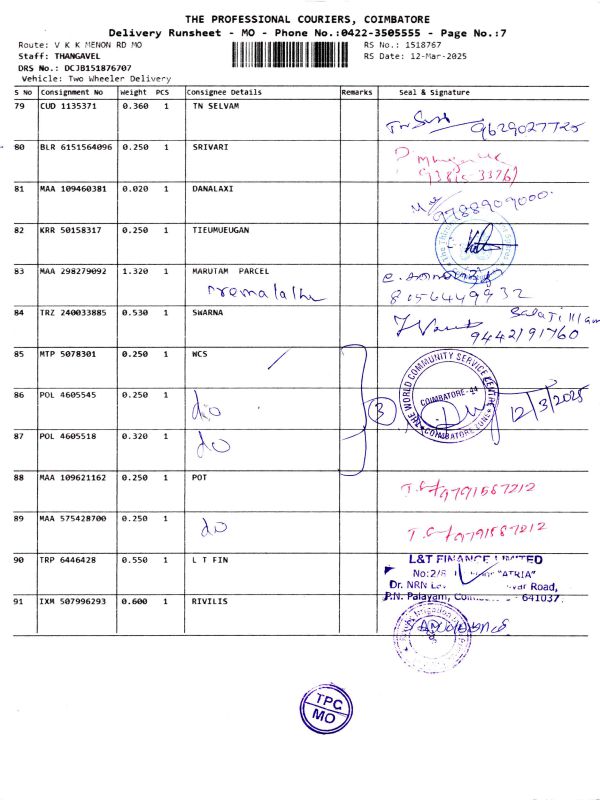 THE PROFESSIONAL COURIERS, COIMBATORE
Delivery Runsheet - MO - Phone No.:0422-3505555 - Page No.:7
Route: V K K MENON RD MO RS No.: 1518767
Staff: THANGAVEL RS Date: 12-Mar-2025
DRS No.: DCJB151876707
Vehicle: Two Wheeler Delivery
S NO Consignment No Weight PCS Consignee Details Remarks Seal & Signature
79 CUD 1135371 0.360 1 TN SELVAM
9629027725
80 BLR 6151564096 0.250 1 SRIVARI
81 MAA 109460381 0.020 1 DANALAXI
9788909000
82 KRR 50158317 0.250 1 TIEUMUEUGAN
83 MAA 298279092 1.320 1 MARUTAM PARCEL
Premalatha
8056449932
84 TRZ 240033885 0.530 1 SWARNA
9442191760
85 MTP 5078301 0.250 1 WCS
THE WORLD COMMUNITY SERVICE CENTRE
COIMBATORE-44
COIMBATORE ZONE
12/3/2025
86 POL 4605545 0.250 1 do
3
87 POL 4605518 0.320 1 do
88 MAA 109621162 0.250 1 POT
9791587212
89 MAA 575428700 0.250 1 do
9791587212
90 TRP 6446428 0.550 1 L T FIN
L&T FINANCE LIMITED
No:2/8 "ATRIA"
Dr. NRN Road,
P.N. Palayam, 641037
91 IXM 507996293 0.600 1 RIVILIS
TPC
MO